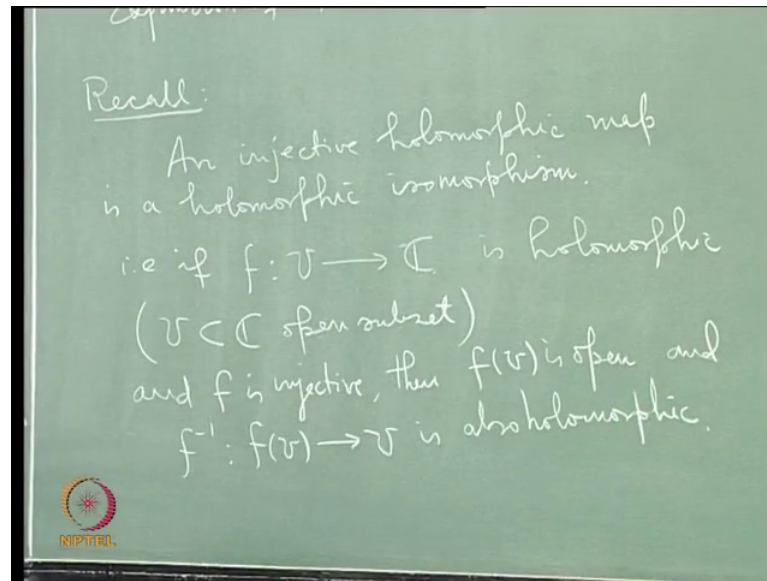 Recall:
An injective holomorphic map
is a holomorphic isomorphism.
i.e if f : U ⟶ ℂ is holomorphic
(U ⊂ ℂ open subset)
and f is injective, then f(U) is open and
f⁻¹ : f(U) → U is also holomorphic.
NPTEL